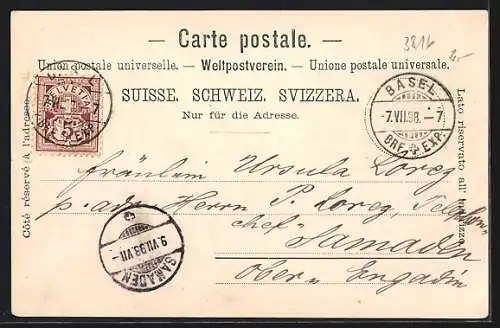 — Carte postale. —
3816
2,-
Union postale universelle. — Weltpostverein. — Unione postale universale.
SUISSE. SCHWEIZ. SVIZZERA.
Nur für die Adresse.
Côté réservé à l'adresse.
Lato riservato all'
HELVETIA
BASEL
-7.VII.98.-7
BRF. EXP.
Fräulein Ursula Loreg
p. adr. Herrn P. Loreg,
chef
Samaden
Ober Engadin
9.VII.98.VII-
SAMADEN